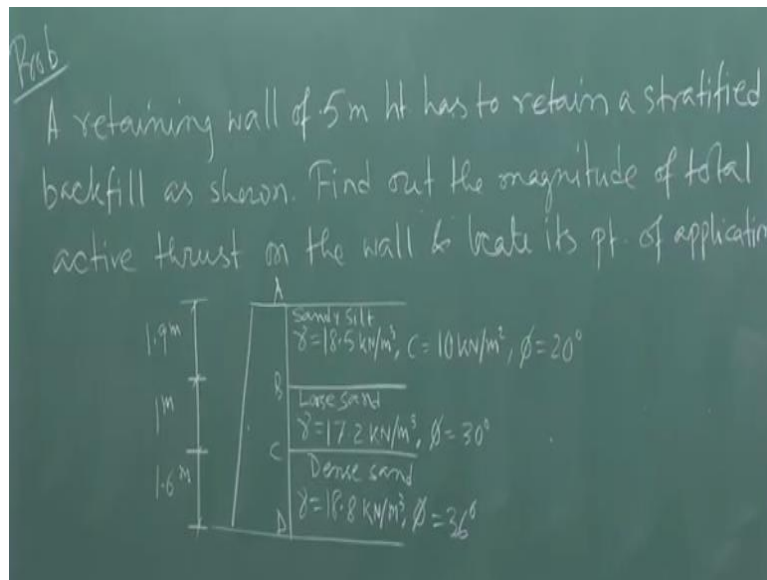 Prob
A retaining wall of 5m ht has to retain a stratified
backfill as shown. Find out the magnitude of total
active thrust on the wall & locate its pt. of application
A
Sandy silt
1.9m
γ=18.5 kN/m³, C= 10 kN/m², φ=20°
B
Loose sand
1m
γ=17.2 kN/m³, φ=30°
C
Dense sand
1.6m
γ=18.8 kN/m³, φ=36°
D